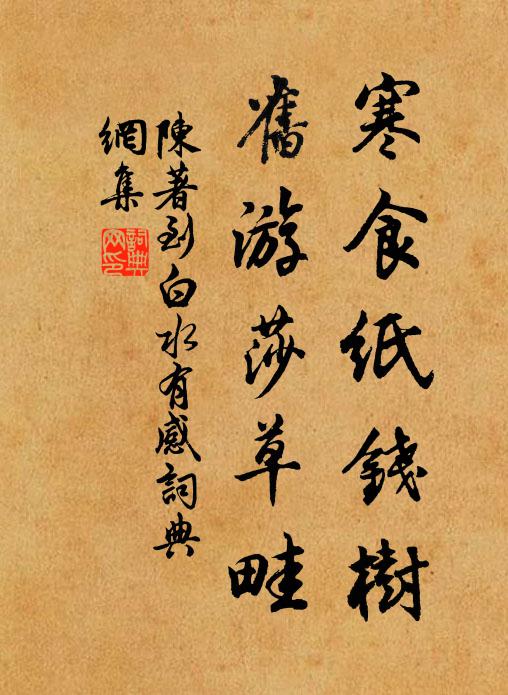 寒食紙錢樹
舊游莎草畦
陳著到白水有感詞典
網集
詞典網印